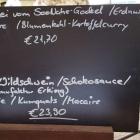 vom SooNahe-Gockel / Erdnuss
/ Blumenkohl-Kartoffelcurry
€21,70
Wildschwein / Schokosauce /
Erking)
/ Kumquats / Macaire
€23,90